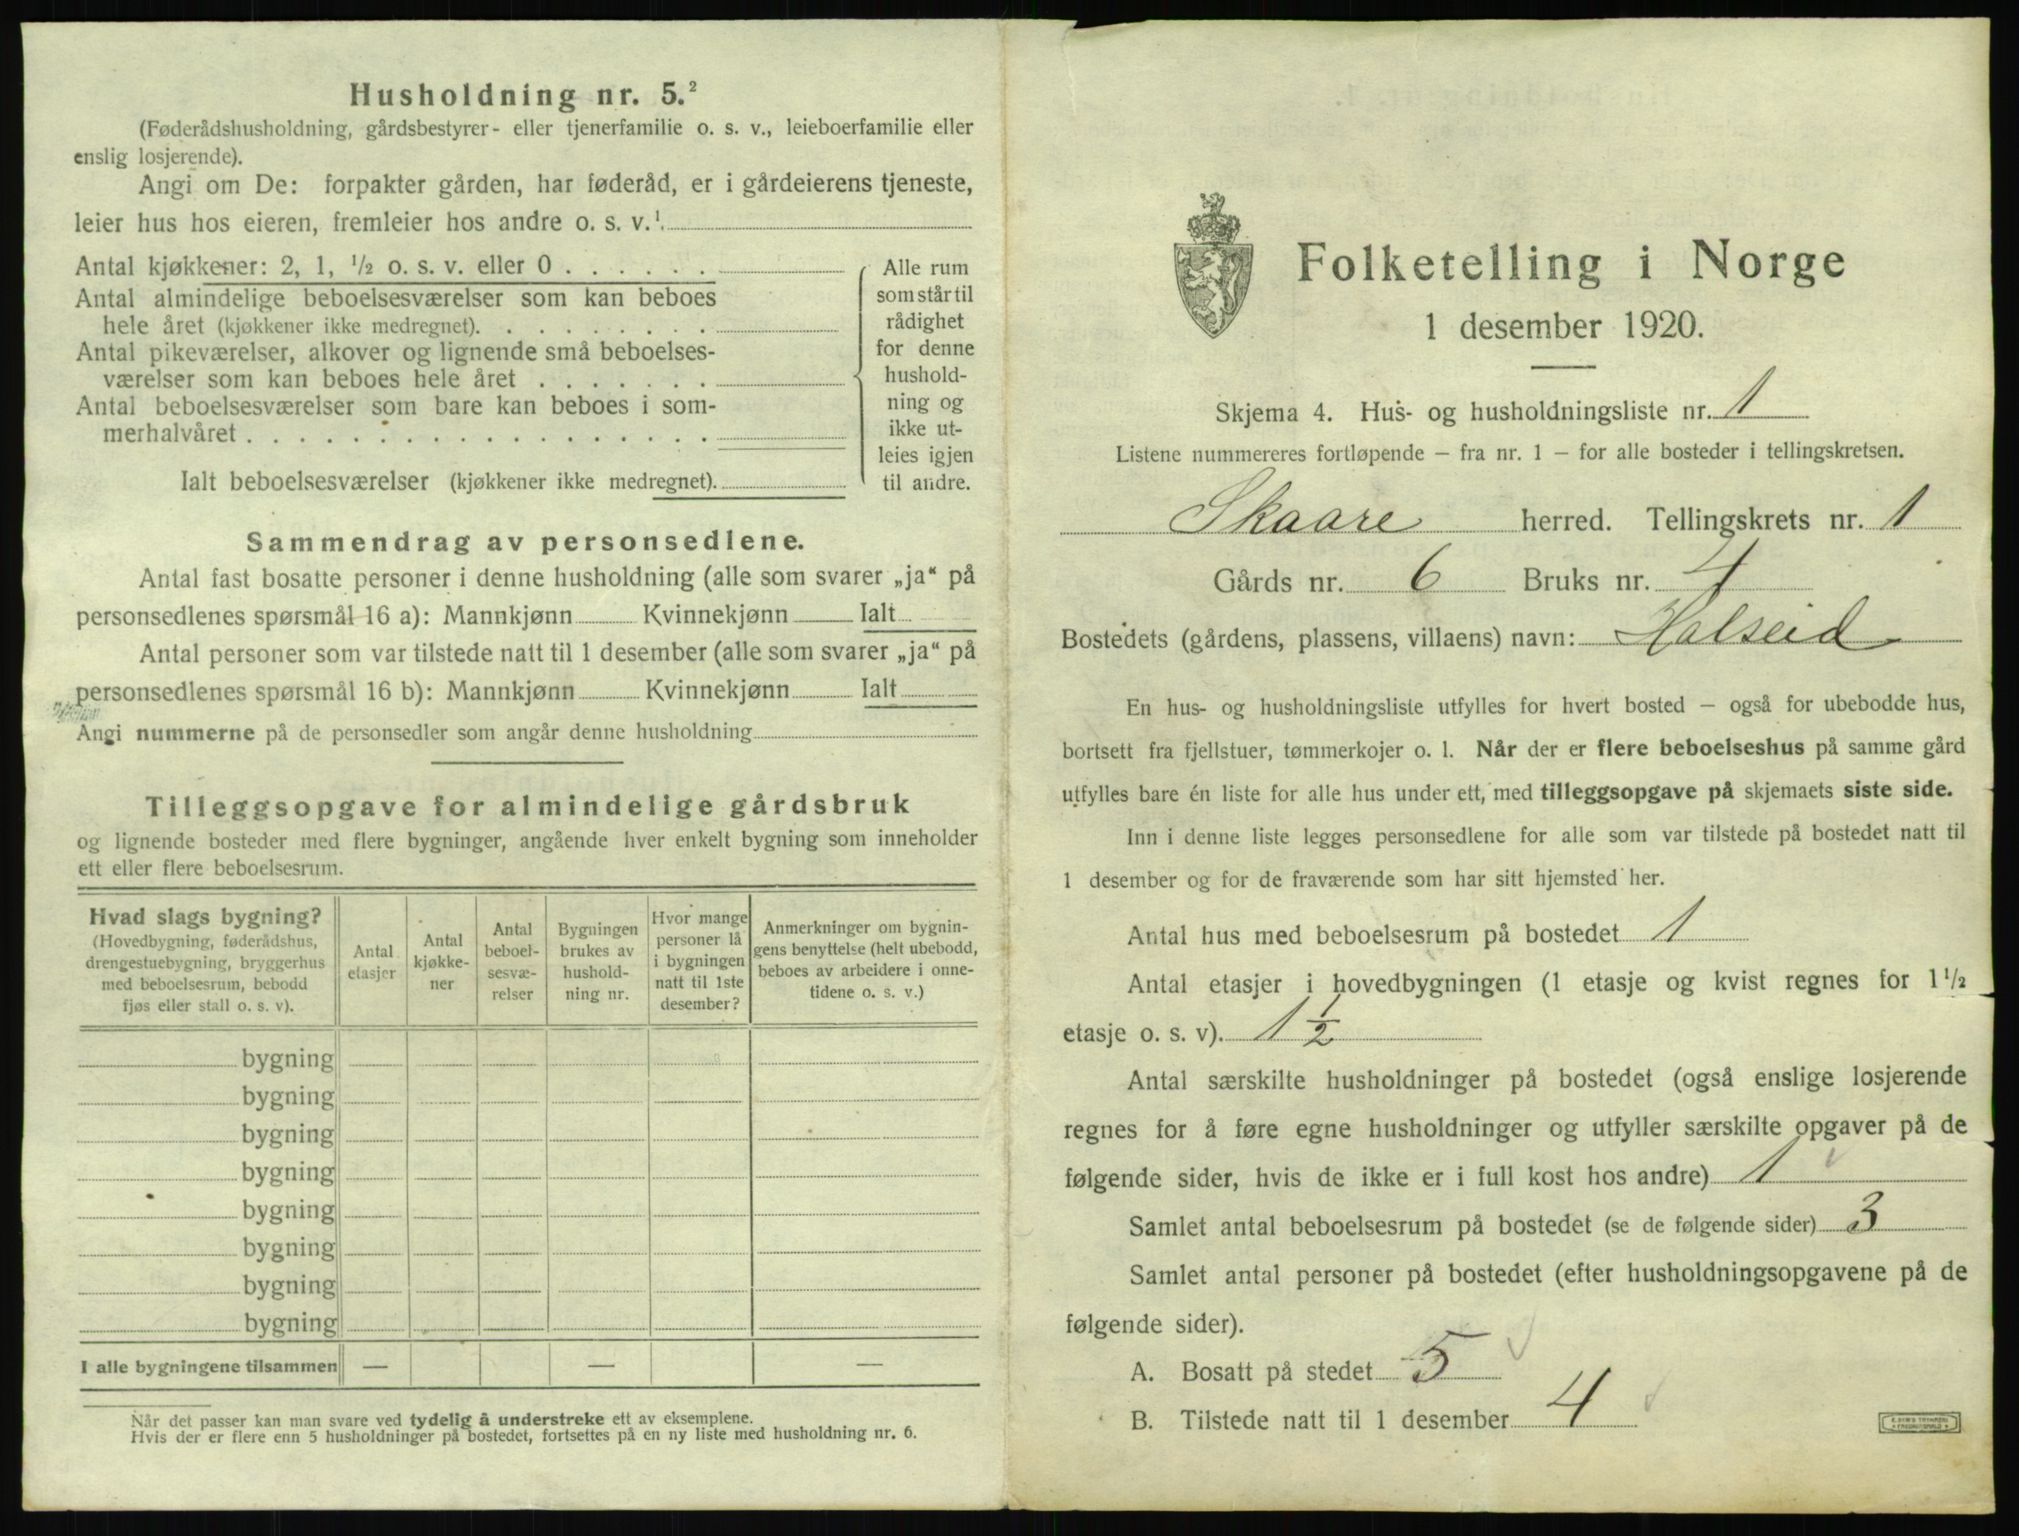 Husholdning nr. 5.²
(Føderådshusholdning, gårdsbestyrer- eller tjenerfamilie o. s. v., leieboerfamilie eller
enslig losjerende).
Angi om De: forpakter gården, har føderåd, er i gårdeierens tjeneste,
leier hus hos eieren, fremleier hos andre o. s. v.¹
Antal kjøkkener: 2, 1, ½ o. s. v. eller 0 . . . . . .
Antal almindelige beboelsesværelser som kan beboes
hele året (kjøkkener ikke medregnet). . . . . . . . .
Antal pikeværelser, alkover og lignende små beboelses-
værelser som kan beboes hele året . . . . . . .
Antal beboelsesværelser som bare kan beboes i som-
merhalvåret . . . . . . . . . . . . . . . . . .
Ialt beboelsesværelser (kjøkkener ikke medregnet).
Alle rum
som står til
rådighet
for denne
hushold-
ning og
ikke ut-
leies igjen
til andre.
Sammendrag av personsedlene.
Antal fast bosatte personer i denne husholdning (alle som svarer „ja“ på
personsedlenes spørsmål 16 a): Mannkjønn Kvinnekjønn Ialt
Antal personer som var tilstede natt til 1 desember (alle som svarer „ja“ på
personsedlenes spørsmål 16 b): Mannkjønn Kvinnekjønn Ialt
Angi nummerne på de personsedler som angår denne husholdning
Tilleggsopgave for almindelige gårdsbruk
og lignende bosteder med flere bygninger, angående hver enkelt bygning som inneholder
ett eller flere beboelsesrum.
Hvad slags bygning?
(Hovedbygning, føderådshus,
drengestuebygning, bryggerhus
med beboelsesrum, bebodd
fjøs eller stall o. s. v).
Antal
etasjer
Antal
kjøkke-
ner
Antal
beboel-
sesvæ-
relser
Bygningen
brukes av
hushold-
ning nr.
Hvor mange
personer lå
i bygningen
natt til 1ste
desember?
Anmerkninger om bygnin-
gens benyttelse (helt ubebodd,
beboes av arbeidere i onne-
tidene o. s. v.)
bygning
bygning
bygning
bygning
bygning
bygning
bygning
bygning
I alle bygningene tilsammen — — —
Når det passer kan man svare ved tydelig å understreke ett av eksemplene.
Hvis der er flere enn 5 husholdninger på bostedet, fortsettes på en ny liste med husholdning nr. 6.
Folketelling i Norge
1 desember 1920.
Skjema 4. Hus- og husholdningsliste nr. 1
Listene nummereres fortløpende – fra nr. 1 – for alle bosteder i tellingskretsen.
Skaare herred. Tellingskrets nr. 1
Gårds nr. 6 Bruks nr. 4
Bostedets (gårdens, plassens, villaens) navn: Halseid
En hus- og husholdningsliste utfylles for hvert bosted – også for ubebodde hus,
bortsett fra fjellstuer, tømmerkojer o. l. Når der er flere beboelseshus på samme gård
utfylles bare én liste for alle hus under ett, med tilleggsopgave på skjemaets siste side.
Inn i denne liste legges personsedlene for alle som var tilstede på bostedet natt til
1 desember og for de fraværende som har sitt hjemsted her.
Antal hus med beboelsesrum på bostedet 1
Antal etasjer i hovedbygningen (1 etasje og kvist regnes for 1½
etasje o. s. v). 1 ½
Antal særskilte husholdninger på bostedet (også enslige losjerende
regnes for å føre egne husholdninger og utfyller særskilte opgaver på de
følgende sider, hvis de ikke er i full kost hos andre) 1
Samlet antal beboelsesrum på bostedet (se de følgende sider) 3
Samlet antal personer på bostedet (efter husholdningsopgavene på de
følgende sider).
A. Bosatt på stedet 5
B. Tilstede natt til 1 desember 4